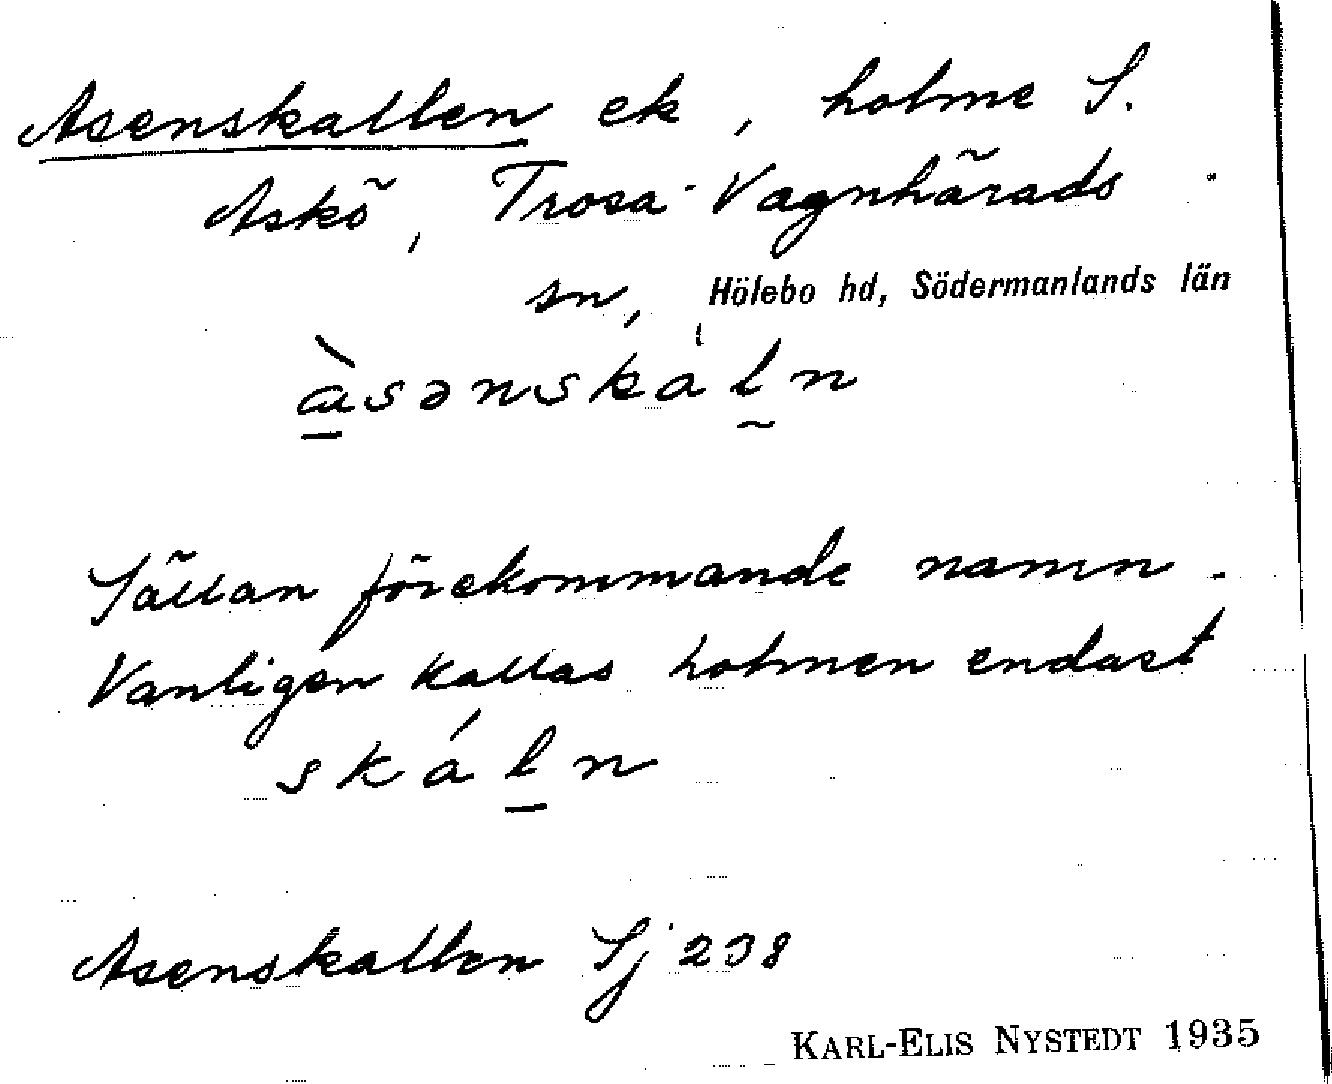 Asenskallen ek, holme S.
Askö, Trosa-Vagnhärads
sn, Hölebo hd, Södermanlands län
à̱sənskáḻn
Sällan förekommande namn.
Vanligen kallas holmen endast
skáḻn
Asenskallen Sj 238
KARL-ELIS NYSTEDT 1935